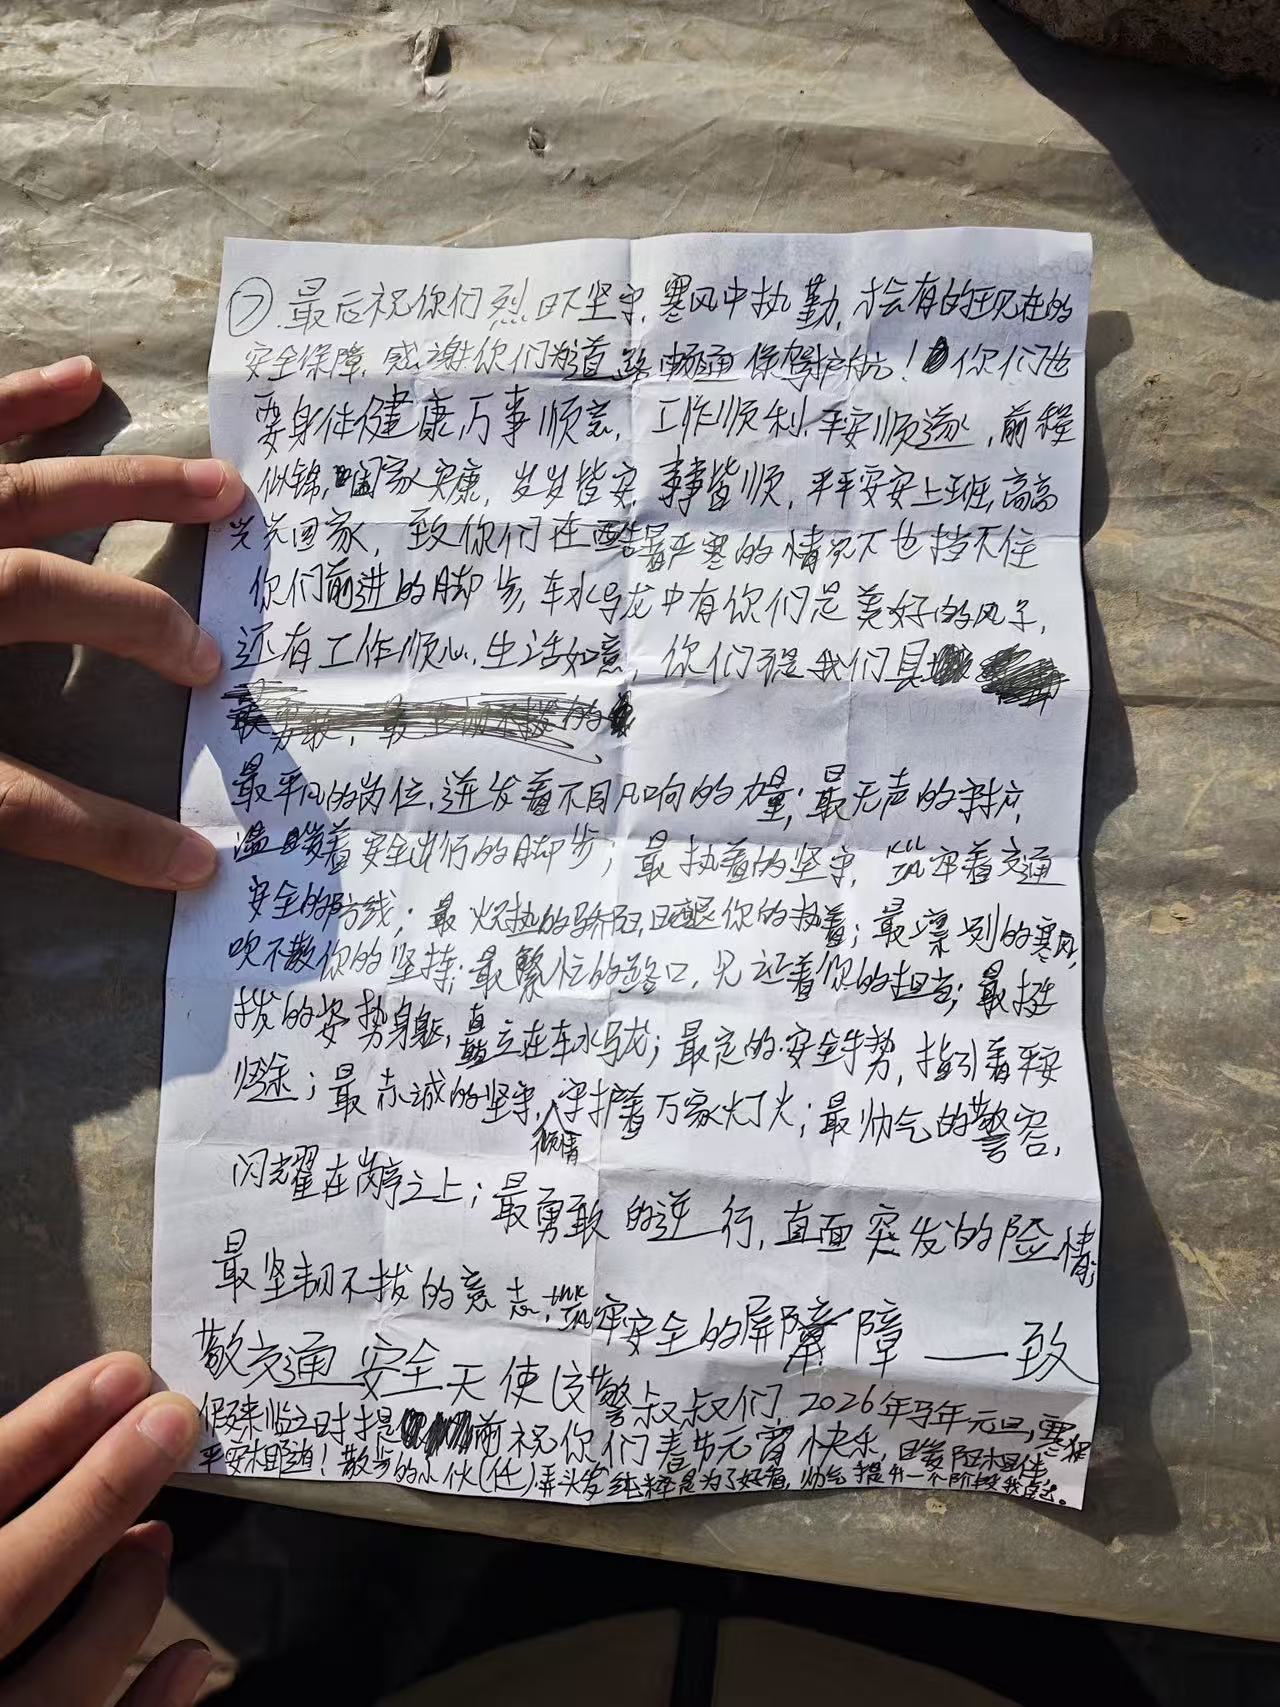 ⑦ 最后祝你们烈日下坚守,寒风中执勤,才会有的现在的
安全保障,感谢你们为道路畅通保驾护航!你们也
要身体健康,万事顺意,工作顺利,平安顺遂,前程
似锦,阖家安康,岁岁皆安,事事皆顺,平平安安上班,高高
兴兴回家,致你们在酷暑严寒的情况下也挡不住
你们前进的脚步,车水马龙中有你们是美好的风子,
还有工作顺心,生活如意,你们是我们具
最平凡的岗位,迸发着不同凡响的力量;最无声的守护,
温暖着安全出行的脚步;最执着的坚守,筑牢着交通
安全的防线;最火热的骄阳,你的执着;最凛冽的寒风,
吹不散你的坚持;最繁忙的路口,见证着你的担当;最挺
拔的姿势身躯,直立在车水马龙;最定的安全手势,指引着平安
归途;最赤诚的坚守,倾情守护着万家灯火;最帅气的警容,
闪耀在岗亭之上;最勇敢的逆行,直面突发的险情;
最坚韧不拔的意志,筑牢安全的屏障——致
敬交通安全天使交警叔叔们,2026年马年元旦,寒
假来临之时提前祝你们春节元宵快乐,
平安相随!散步的小伙(仕)弄头发纯粹是为了好看,帅气提升一个阶段